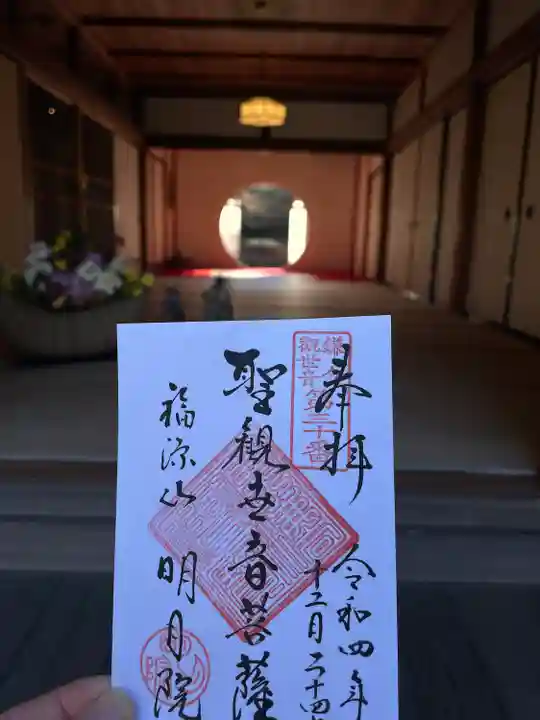 奉拝
鎌倉
觀世音第三十番
令和四年
十二月二十四
聖觀世音菩薩
福源山 明月院